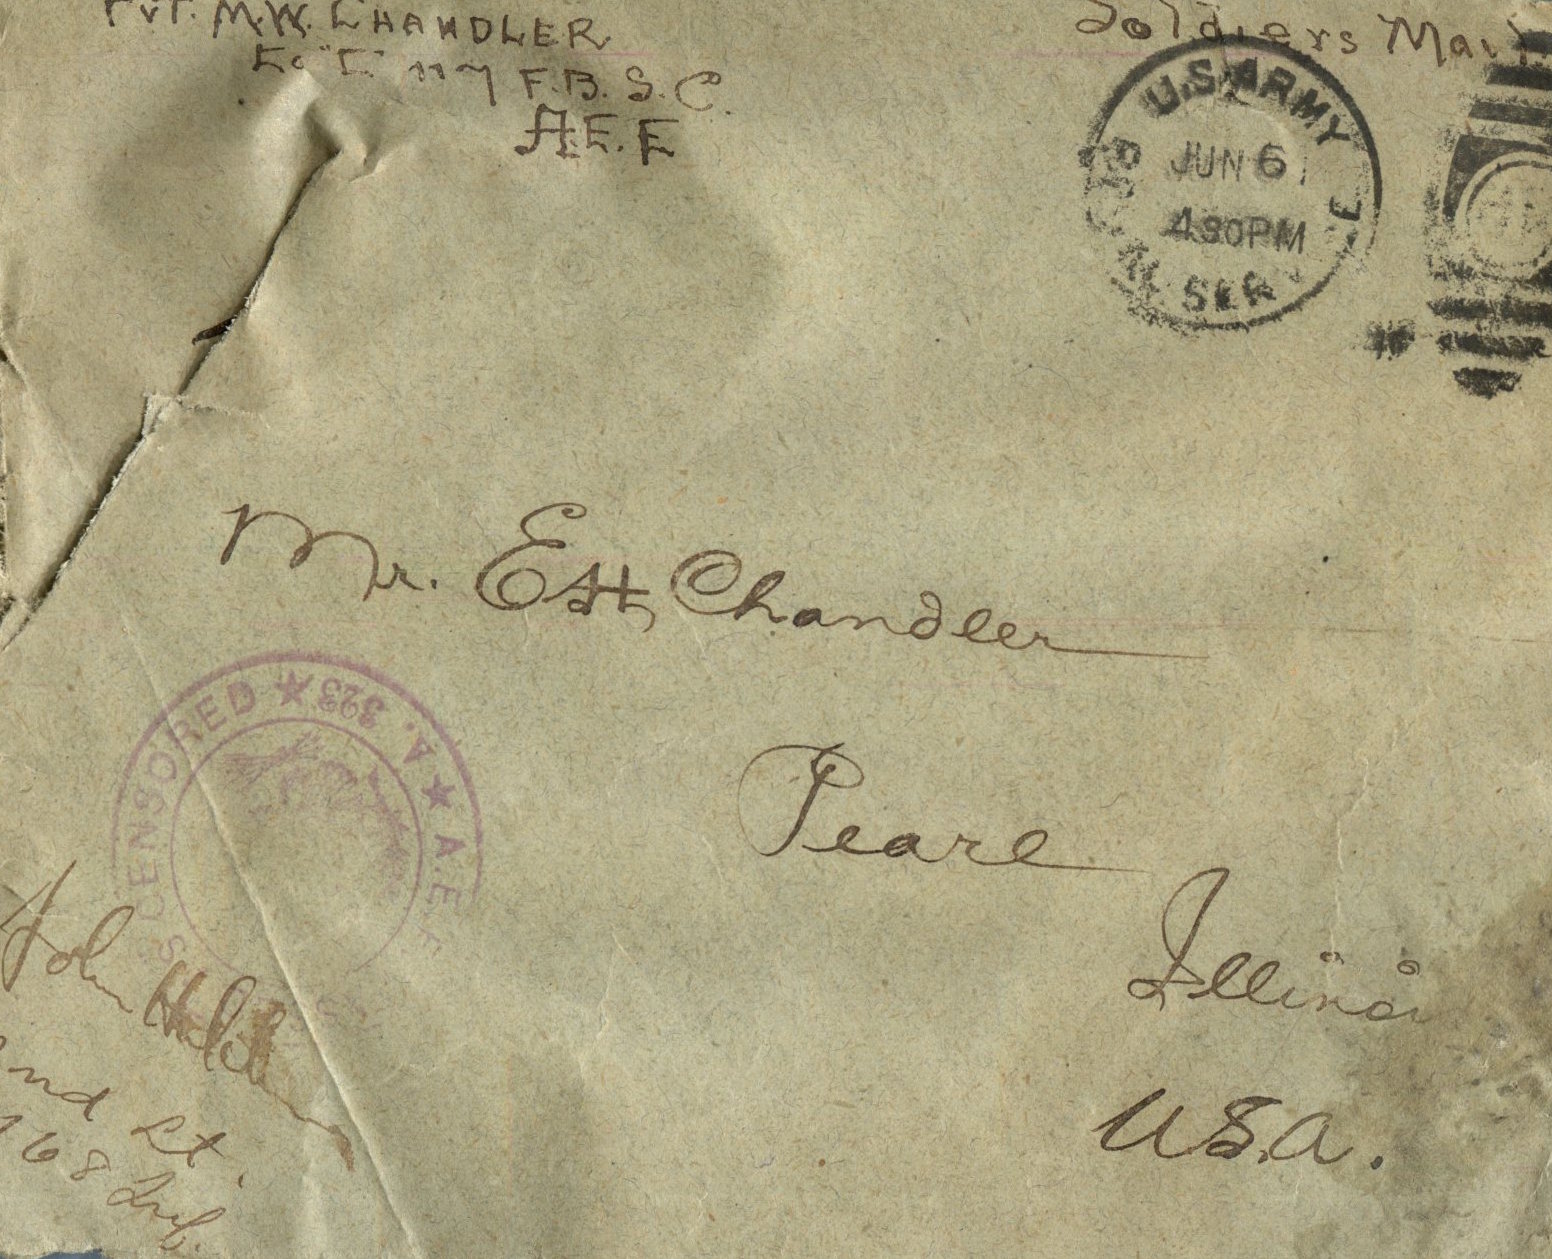 Pvt. M.W. CHANDLER
Co "E" 117 F.B.S.C.
A.E.F
Soldiers Mail
U.S. ARMY
JUN 6
430PM
SER
Mr. E H Chandler
Pearl
Illinoi
U.S.A.
S CENSORED ★ A. 323 ★ A.E.F
John
nd Lt.
168 Inf.